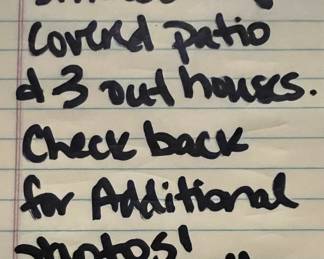 Covered patio
& 3 out houses.
Check back
for Additional
photos!